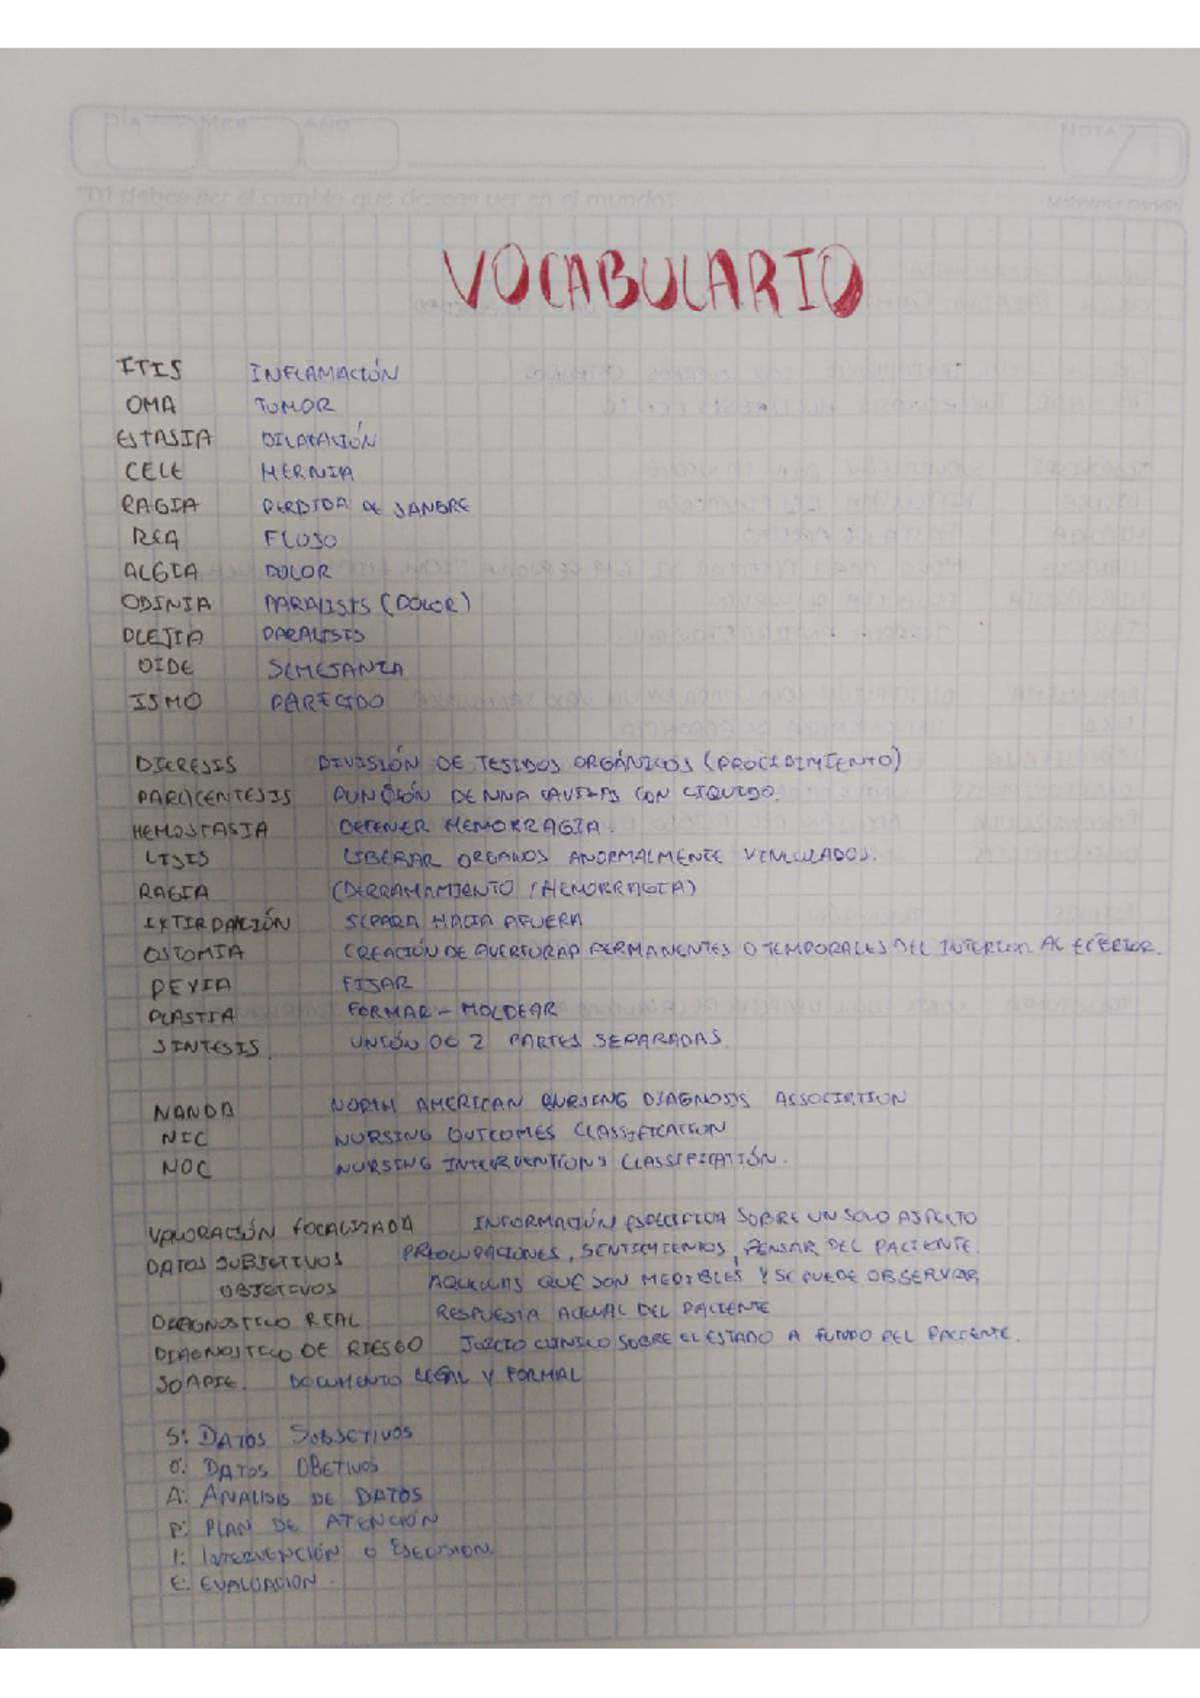 DÍA MES AÑO NOTA
"Tú debes ser el cambio que deseas ver en el mundo"
VOCABULARIO
ITIS INFLAMACIÓN
OMA TUMOR
ESTASIA DILATACIÓN
CELE HERNIA
RAGIA PERDIDA DE SANGRE
REA FLUJO
ALGIA DOLOR
ODINIA PARALISIS (DOLOR)
PLEJIA PARALISIS
OIDE SEMEJANZA
ISMO PARECIDO
DIERESIS DIVISIÓN DE TEJIDOS ORGÁNICOS (PROCEDIMIENTO)
PARACENTESIS PUNCIÓN DE UNA CON LIQUIDO.
HEMOSTASIA DETENER HEMORRAGIA.
LISIS LIBERAR ORGANOS ANORMALMENTE VINCULADOS.
RAGIA (DERRAMAMIENTO (HEMORRAGIA)
SEPARA HACIA AFUERA
OSTOMIA CREACIÓN DE PERMANENTES O TEMPORALES DEL INTERIOR AL
PEXIA FIJAR
PLASTIA FORMAR - MOLDEAR
SINTESIS. UNIÓN DE 2 PARTES SEPARADAS.
NANDA NORTH AMERICAN NURSING DIAGNOSIS ASSOCIATION
NIC NURSING OUTCOMES CLASSIFICATION
NOC NURSING INTERVENTIONS CLASSIFICATIÓN.
VALORACIÓN FOCALIZADA INFORMACIÓN ESPECIFICA SOBRE UN SOLO ASPECTO
DATOS SUBJETIVOS PREOCUPACIONES, SENTIMIENTOS, PENSAR DEL PACIENTE.
OBJETIVOS AQUELLAS QUE SON MEDIBLES Y SE PUEDE OBSERVAR
DIAGNOSTICO REAL RESPUESTA ACTUAL DEL PACIENTE
DIAGNOSTICO DE RIESGO JUICIO CLINICO SOBRE EL ESTADO A DEL PACIENTE.
SOAPIE. DOCUMENTO LEGAL Y FORMAL
S: DATOS SUBJETIVOS
O: DATOS OBETIVOS
A: ANALISIS DE DATOS
P: PLAN DE ATENCIÓN
I: INTERVENCIÓN O
E: EVALUACION.